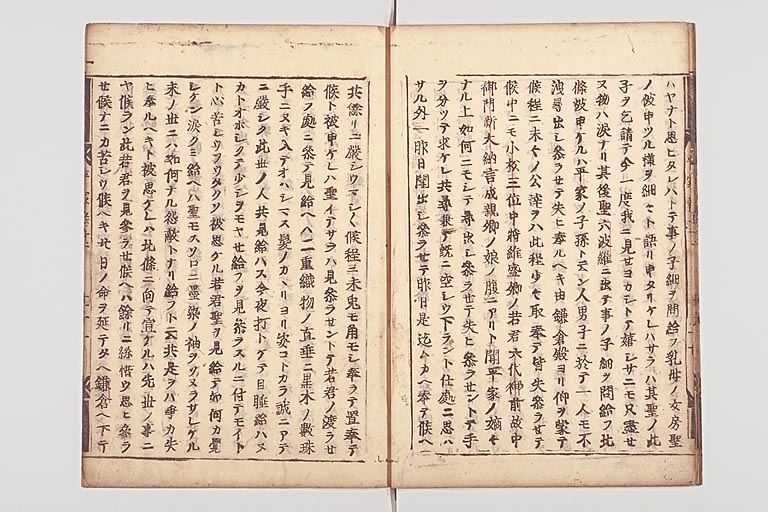 ハヤナト思ヒタレハトテ事ノ子細ヲ問給ヲ乳母ノ女房聖
ノ彼申ツル様ヲ細々ト語リ申タリケレハサラハ其聖ノ此
子ヲ乞請テ今一度我ニ見セヨカシトテ嬉シサニモ只盡セ
又物ハ涙ナリ其後聖六波羅ニ出テ事ノ子細ヲ問給フ北
條被申ケルハ平家ノ子孫ト云ン人男子ニ於テハ一人モ不
洩尋出シ参ラセテ失ヒ奉ルヘキ由鎌倉殿ヨリ仰ヲ蒙テ
候程ニ末々ノ公達ヲハ此程少々取奉テ皆失参ラセテ
候中ニモ小松三位中將維盛卿ノ若君六代御前故中
御門新大納言成親卿ノ娘ノ腹ニアリト聞平家ノ嫡々
ナル上如何ニモシテ尋出シ参ラセテ失ヒ参ラセントテ手
ヲ分ツテ求ケレ共尋兼テ既ニ空シウ下ラント仕處ニ思ハ
サル外ニ一昨日聞出シ参ラセテ昨日是迄ムカヘ奉テ候ヘ
共餘リニ嚴シウマシく候程ニ未兎モ角モシ奉ラテ置奉テ
候ト被申ケレハ聖イテサラハ見参ラセントテ若君ノ渡ラセ
給フ處ニ参テ見給ヘハ二重織物ノ直垂ニ黒木ノ數珠
手ニヌキ入テオハシマス髪ノカヽリヨリ姿コトカラ誠ニアテ
ニ嚴シク此世ノ人共見給ハス今夜打トケテ目睡給ハヌ
カトオホシクテ少シヲモヤセ給フヲ見参ラスルニ付テモイト
ト心苦シウヲウタクソ被思ケル若君聖ヲ見給テ如何カ覺
シケン涙クミ給ヘハ聖モスソロニ墨染ノ袖ヲソヌラサレケル
末ノ世ニハ如何ナル怨敵トナリ給フト云共是ヲハ爭カ失
ヒ奉ルヘキト被思ケレハ北條ニ向テ宣ケルハ先世ノ事ニ
ヤ候ラン此若君ヲ見参ラセ候ヘハ餘リニ糸惜ウ思ヒ参ラ
セ候ナニカ苦シウ候ヘキ廿日ノ命ヲ延テタヘ鎌倉ヘ下テ